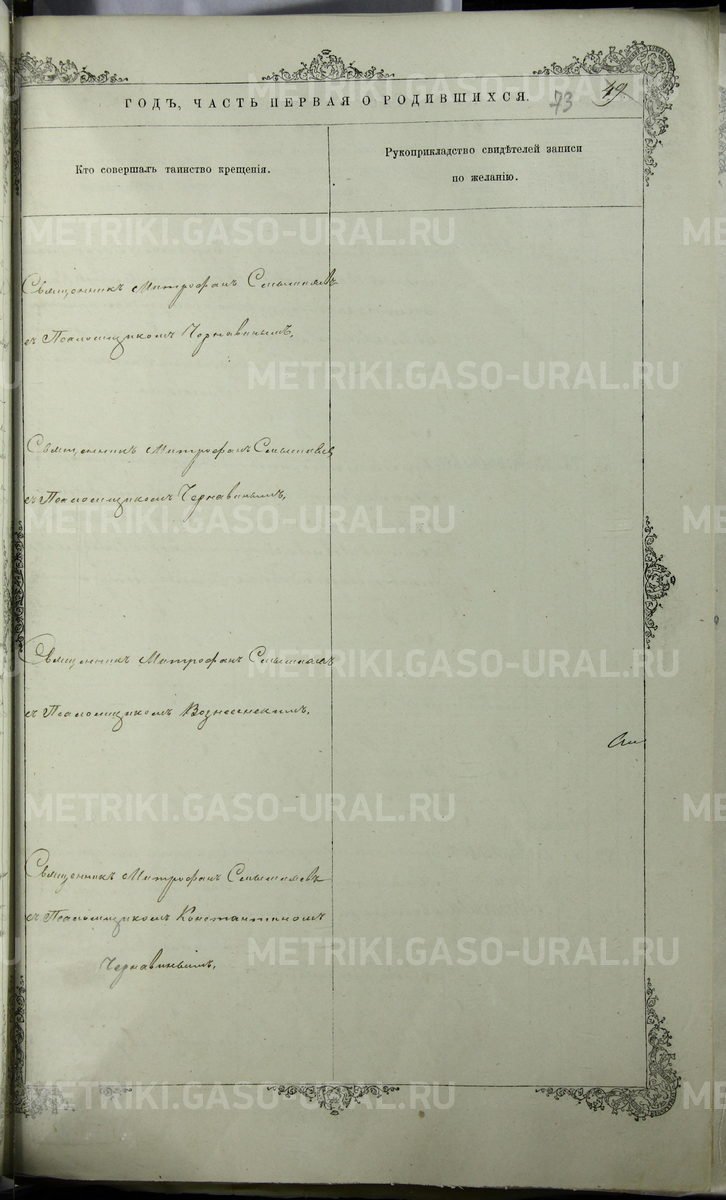 ГОДЪ, ЧАСТЬ ПЕРВАЯ О РОДИВШИХСЯ.
73 49.
Кто совершалъ таинство крещенія.
Рукоприкладство свидѣтелей записи
по желанію.
METRIKI.GASO-URAL.RU
Священникъ Митрофанъ Смышляевъ
съ Псаломщикомъ Чернавинымъ.
METRIKI.GASO-URAL.RU
Священникъ Митрофанъ Смышляевъ
съ Псаломщикомъ Чернавинымъ,
METRIKI.GASO-URAL.RU
Священникъ Митрофанъ Смышляевъ
METRIKI.GASO-URAL.RU
съ Псаломщикомъ Вознесенскимъ.
METRIKI.GASO-URAL.RU
Священникъ Митрофанъ Смышляевъ
съ Псаломщикомъ Константиномъ
METRIKI.GASO-URAL.RU
Чернавинымъ.
METRIKI.GASO-URAL.RU